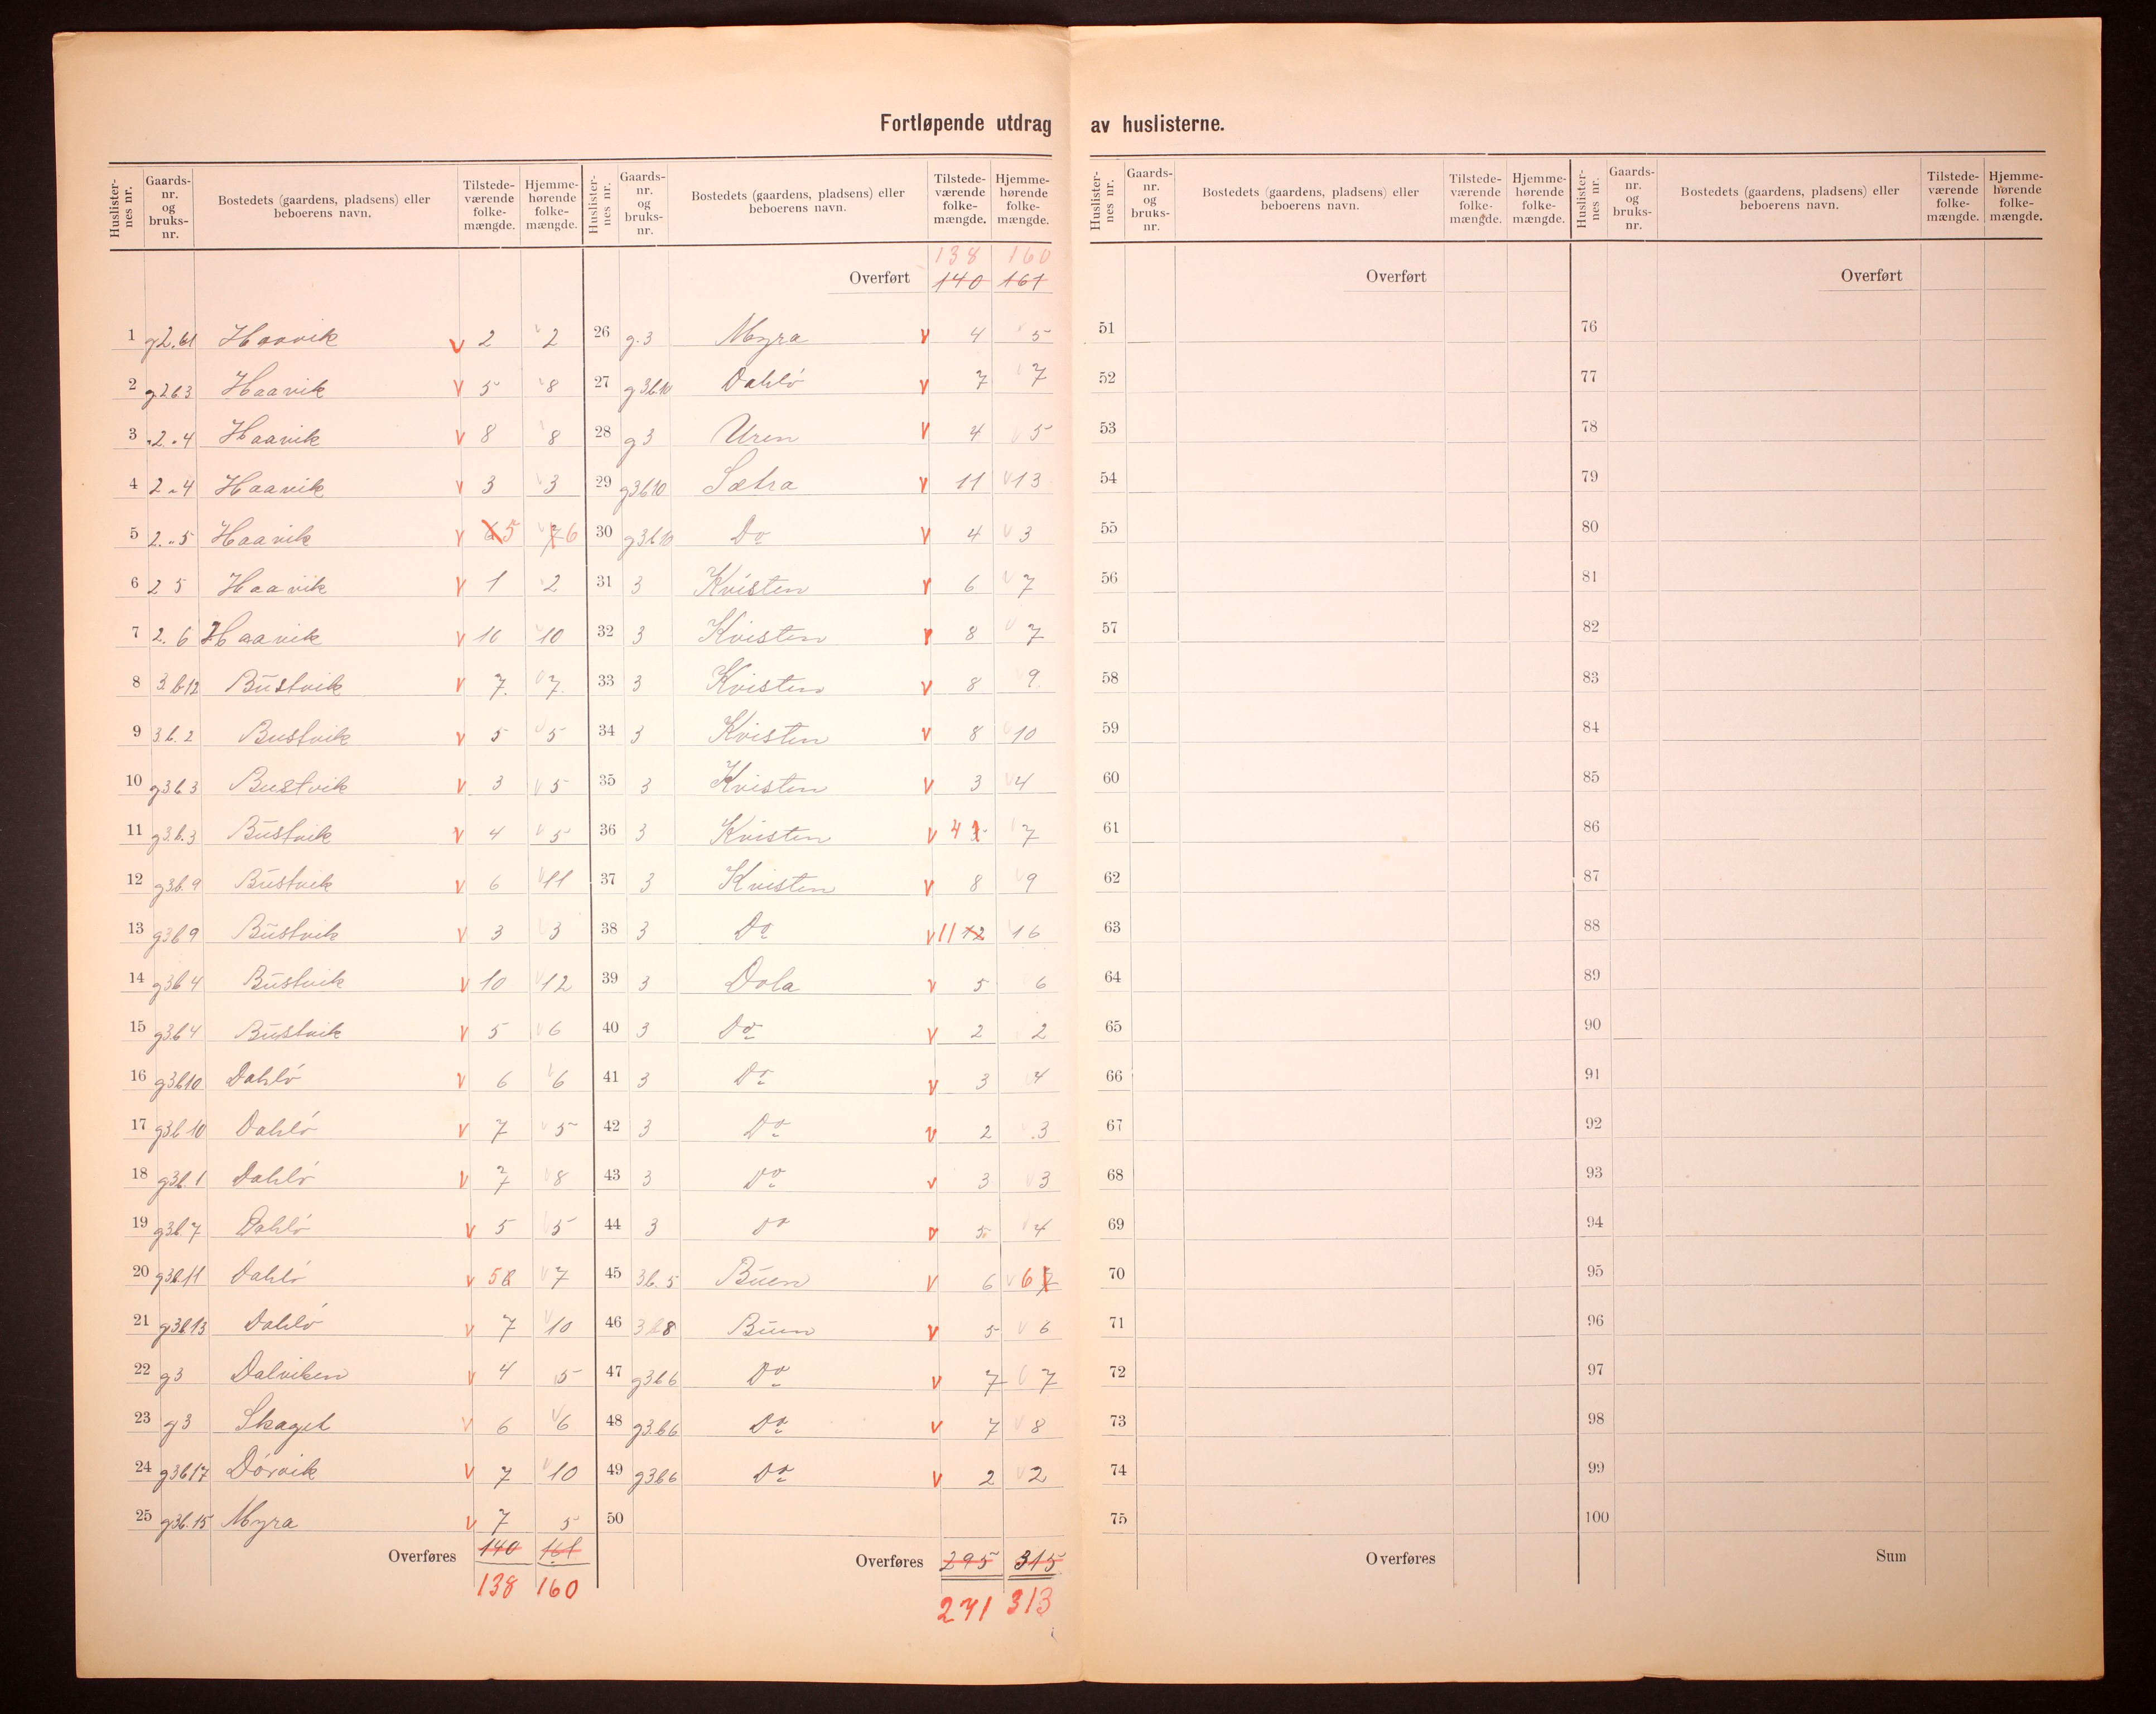 Fortløpende utdrag av huslisterne.
Huslisternes nr. Gaards-nr. og bruks-nr. Bostedets (gaardens, pladsens) eller beboerens navn. Tilstedeværende folkemængde. Hjemmehørende folkemængde.
1 g2.b1 Haavik v 2 v 2
2 g2b3 Haavik v 5 v 8
3 "2"4 Haavik v 8 v 8
4 2"4 Haavik v 3 v 3
5 2."5 Haavik v 6 5 v 7 6
6 2 5 Haavik v 1 v 2
7 2. 6 Haavik v 10 v 10
8 3.b12 Bustvik v 7. v 7.
9 3.b.2 Bustvik v 5 v 5
10 g3b3 Bustvik v 3 v 5
11 g3.b.3 Bustvik v 4 v 5
12 g3.b.9 Bustvik v 6 v 11
13 g3b9 Bustvik v 3 v 3
14 g3b4 Bustvik v 10 v 12
15 g3.b4 Bustvik v 5 v 6
16 g3b10 Dahlö v 6 v 6
17 g3b10 Dahlö v 7 v 5
18 g3b.1 Dahlö v 7 v 8
19 g3b.7 Dahlö v 5 v 5
20 g3b.11 Dahlö v 5 6 v 7
21 g3b13 Dahlö v 7 v 10
22 g3 Dalviken v 4 5
23 g3 Skaget v 6 v 6
24 g3b17 Dörvik v 7 v 10
25 g3b.15 Myra v 7 5
Overføres 140 161
138 160
Huslisternes nr. Gaards-nr. og bruks-nr. Bostedets (gaardens, pladsens) eller beboerens navn. Tilstedeværende folkemængde. Hjemmehørende folkemængde.
138 160
Overført 140 161
26 g.3 Myra v 4 v 5
27 g3b10 Dahlö v 7 v 7
28 g3 Uren v 4 v 5
29 g3b10 Sætra v 11 v 13
30 g3b10 Do v 4 v 3
31 3 Kvisten v 6 v 7
32 3 Kvisten v 8 v 7
33 3 Kvisten v 8 v 9.
34 3 Kvisten v 8 v 10
35 3 Kvisten v 3 v 4
36 3 Kvisten v 4 v 7
37 3 Kvisten v 8 v 9
38 3 Do v 11 12 v 16
39 3 Dola v 5 6
40 3 Do v 2 2
41 3 Do v 3 v 4
42 3 Do v 2 v 3
43 3 Do v 3 v 3
44 3 Do v 5 v 4
45 3b.5 Buen v 6 v 6 7
46 3b8 Buen v 5 v 6
47 g3b6 Do v 7 v 7
48 g3.b6 Do v 7 v 8
49 g3b6 Do v 2 v 2
50
Overføres 295 315
271 313
Huslisternes nr. Gaards-nr. og bruks-nr. Bostedets (gaardens, pladsens) eller beboerens navn. Tilstedeværende folkemængde. Hjemmehørende folkemængde.
Overført
51
52
53
54
55
56
57
58
59
60
61
62
63
64
65
66
67
68
69
70
71
72
73
74
75
Overføres
Huslisternes nr. Gaards-nr. og bruks-nr. Bostedets (gaardens, pladsens) eller beboerens navn. Tilstedeværende folkemængde. Hjemmehørende folkemængde.
Overført
76
77
78
79
80
81
82
83
84
85
86
87
88
89
90
91
92
93
94
95
96
97
98
99
100
Sum